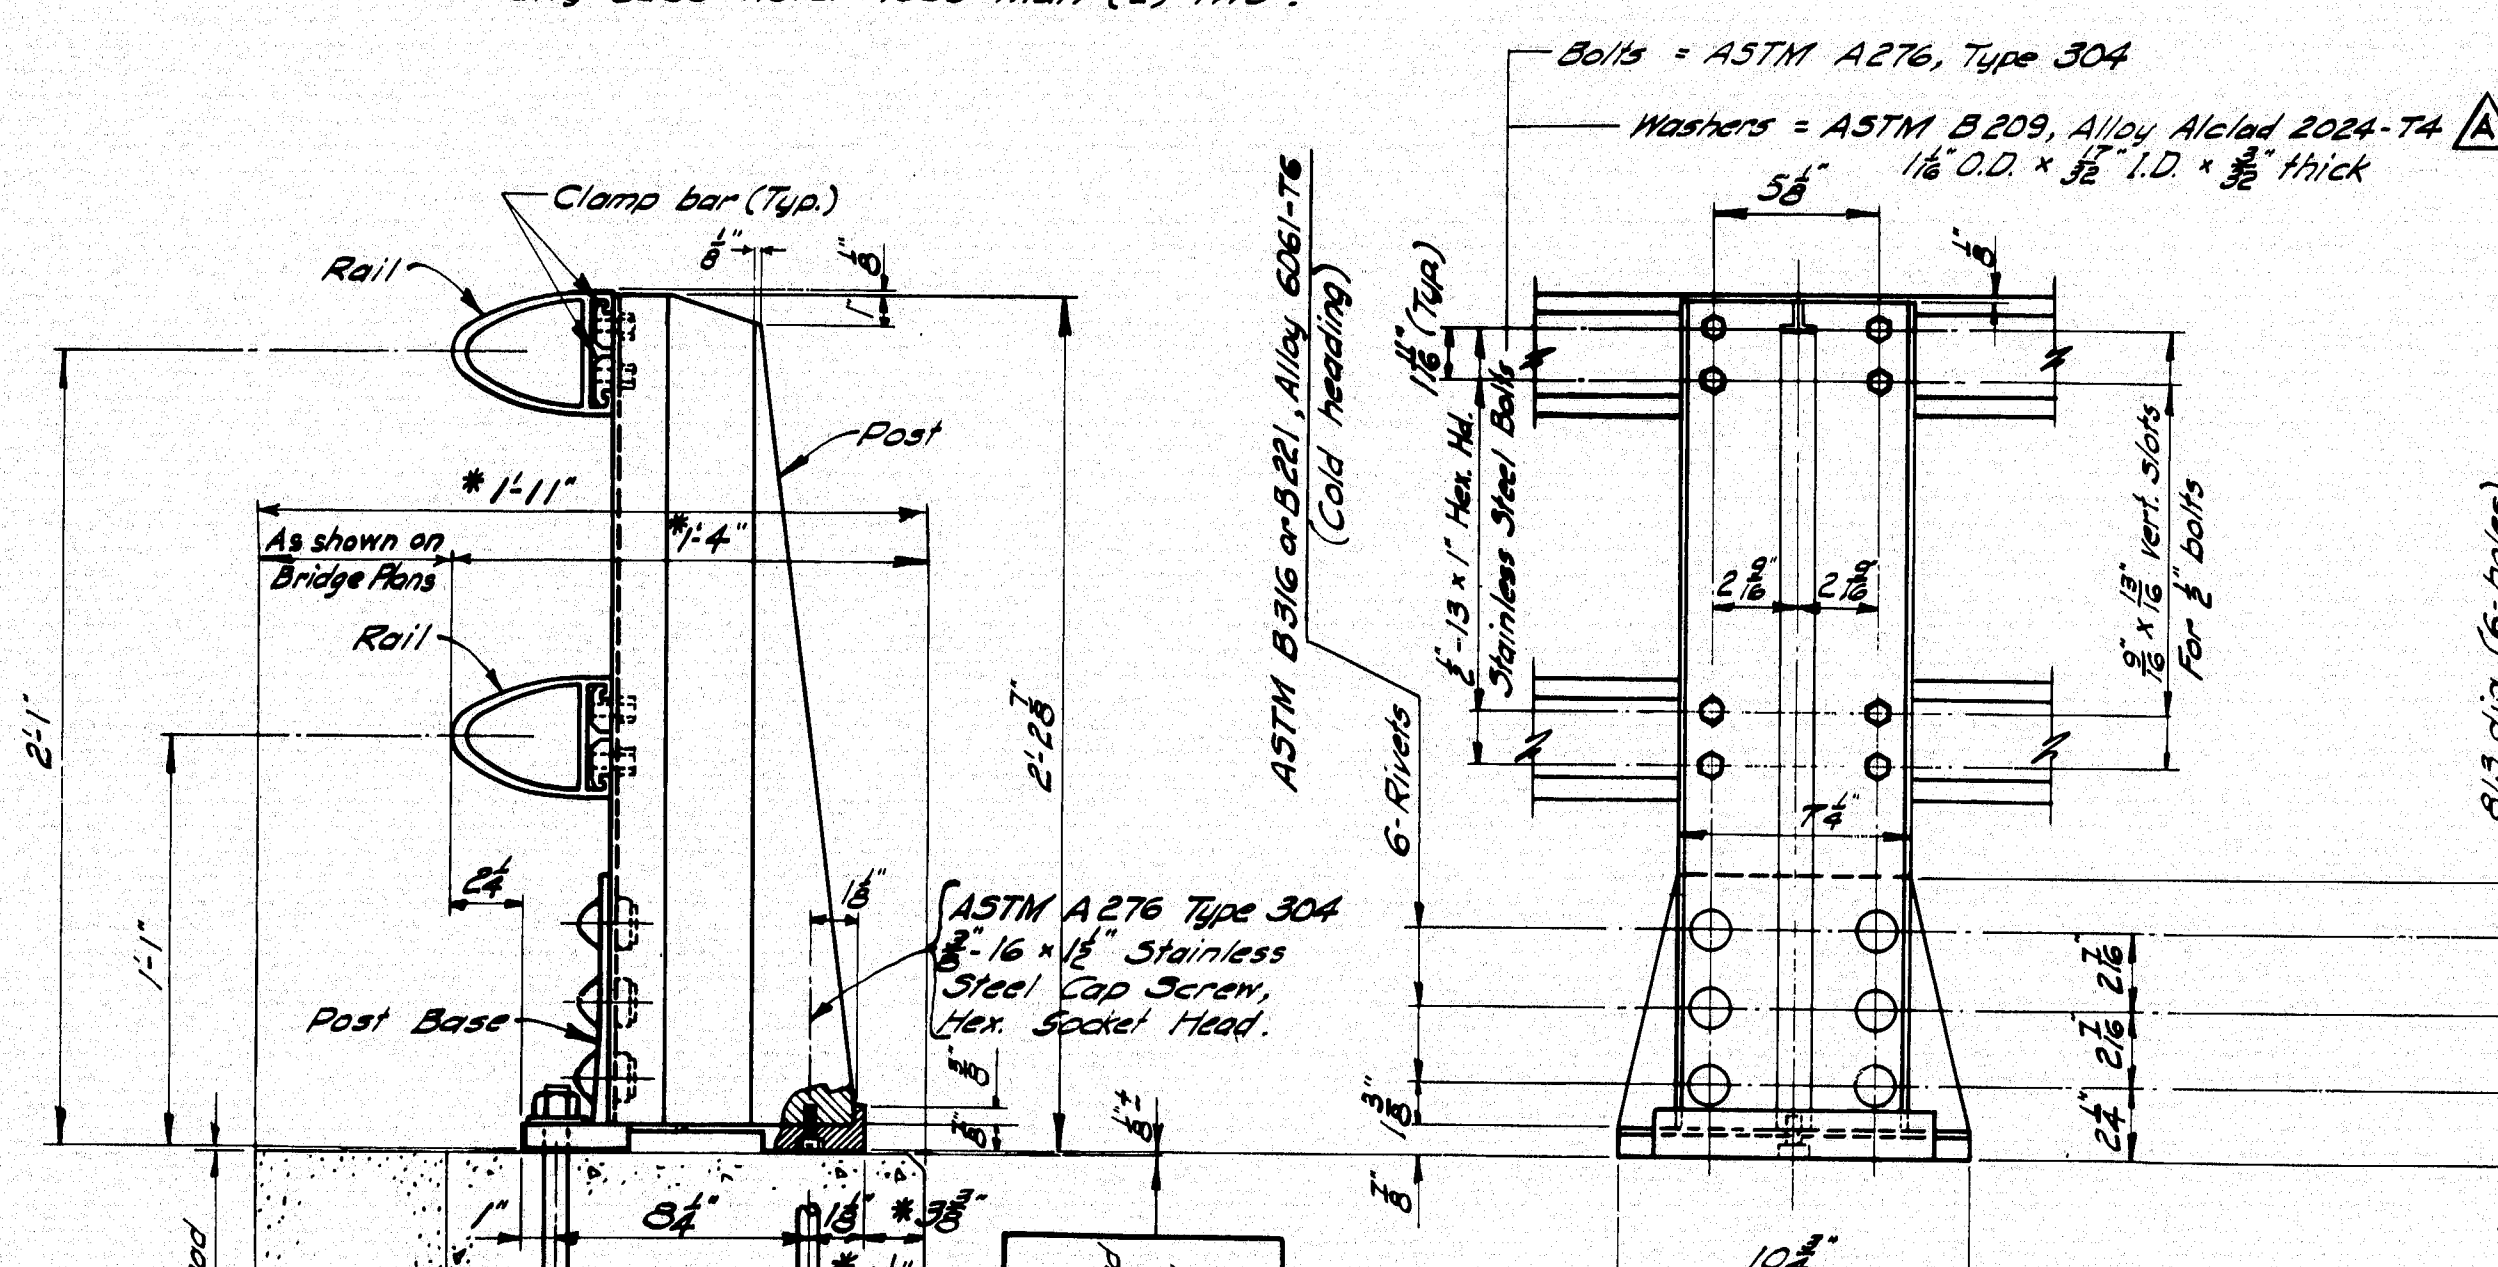 Bolts = ASTM A276, Type 304
Washers = ASTM B209, Alloy Alclad 2024-T4 A
1 1/16" O.D. × 17/32" I.D. × 3/32" thick
Clamp bar (Typ.)
Rail
1/8"
1/8"
1"
Post
* 1'-11"
* 1'-4"
As shown on
Bridge Plans
Rail
2'-1"
1'-1"
2'-2 7/8"
2 1/4
1 1/8"
ASTM A276 Type 304
3/8"-16 × 1 1/2" Stainless
Steel Cap Screw,
Hex. Socket Head.
Post Base
5/8"
7/8"
1/8" ±
1"
8 1/4"
1 1/8"
* 3 3/8"
ASTM B316 or B221, Alloy 6061-T6
(Cold heading)
6-Rivets
1 11/16" (Typ.)
1/2"-13 × 1" Hex. Hd.
Stainless Steel Bolts
5 1/8"
1/8"
2 9/16"
2 9/16"
9/16" × 13/16" vert. slots
For 1/2" bolts
7 1/4"
2 7/16"
2 7/16"
2 1/4"
1 3/8"
7/8"
10 3/4"